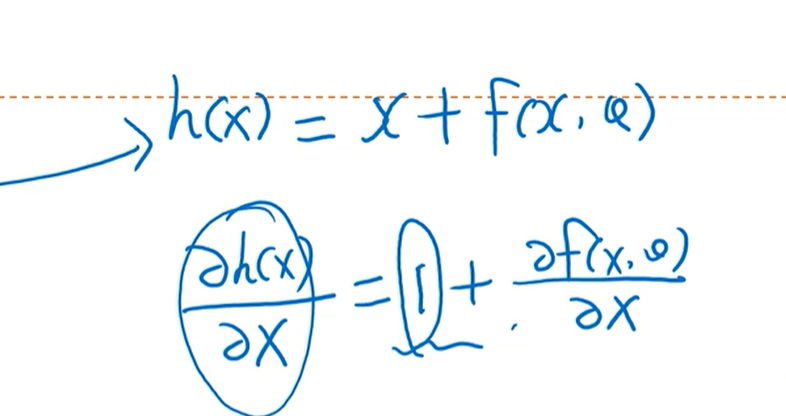 h(x) = x + f(x, θ)
∂h(x)/∂x = 1 + ∂f(x, θ)/∂x